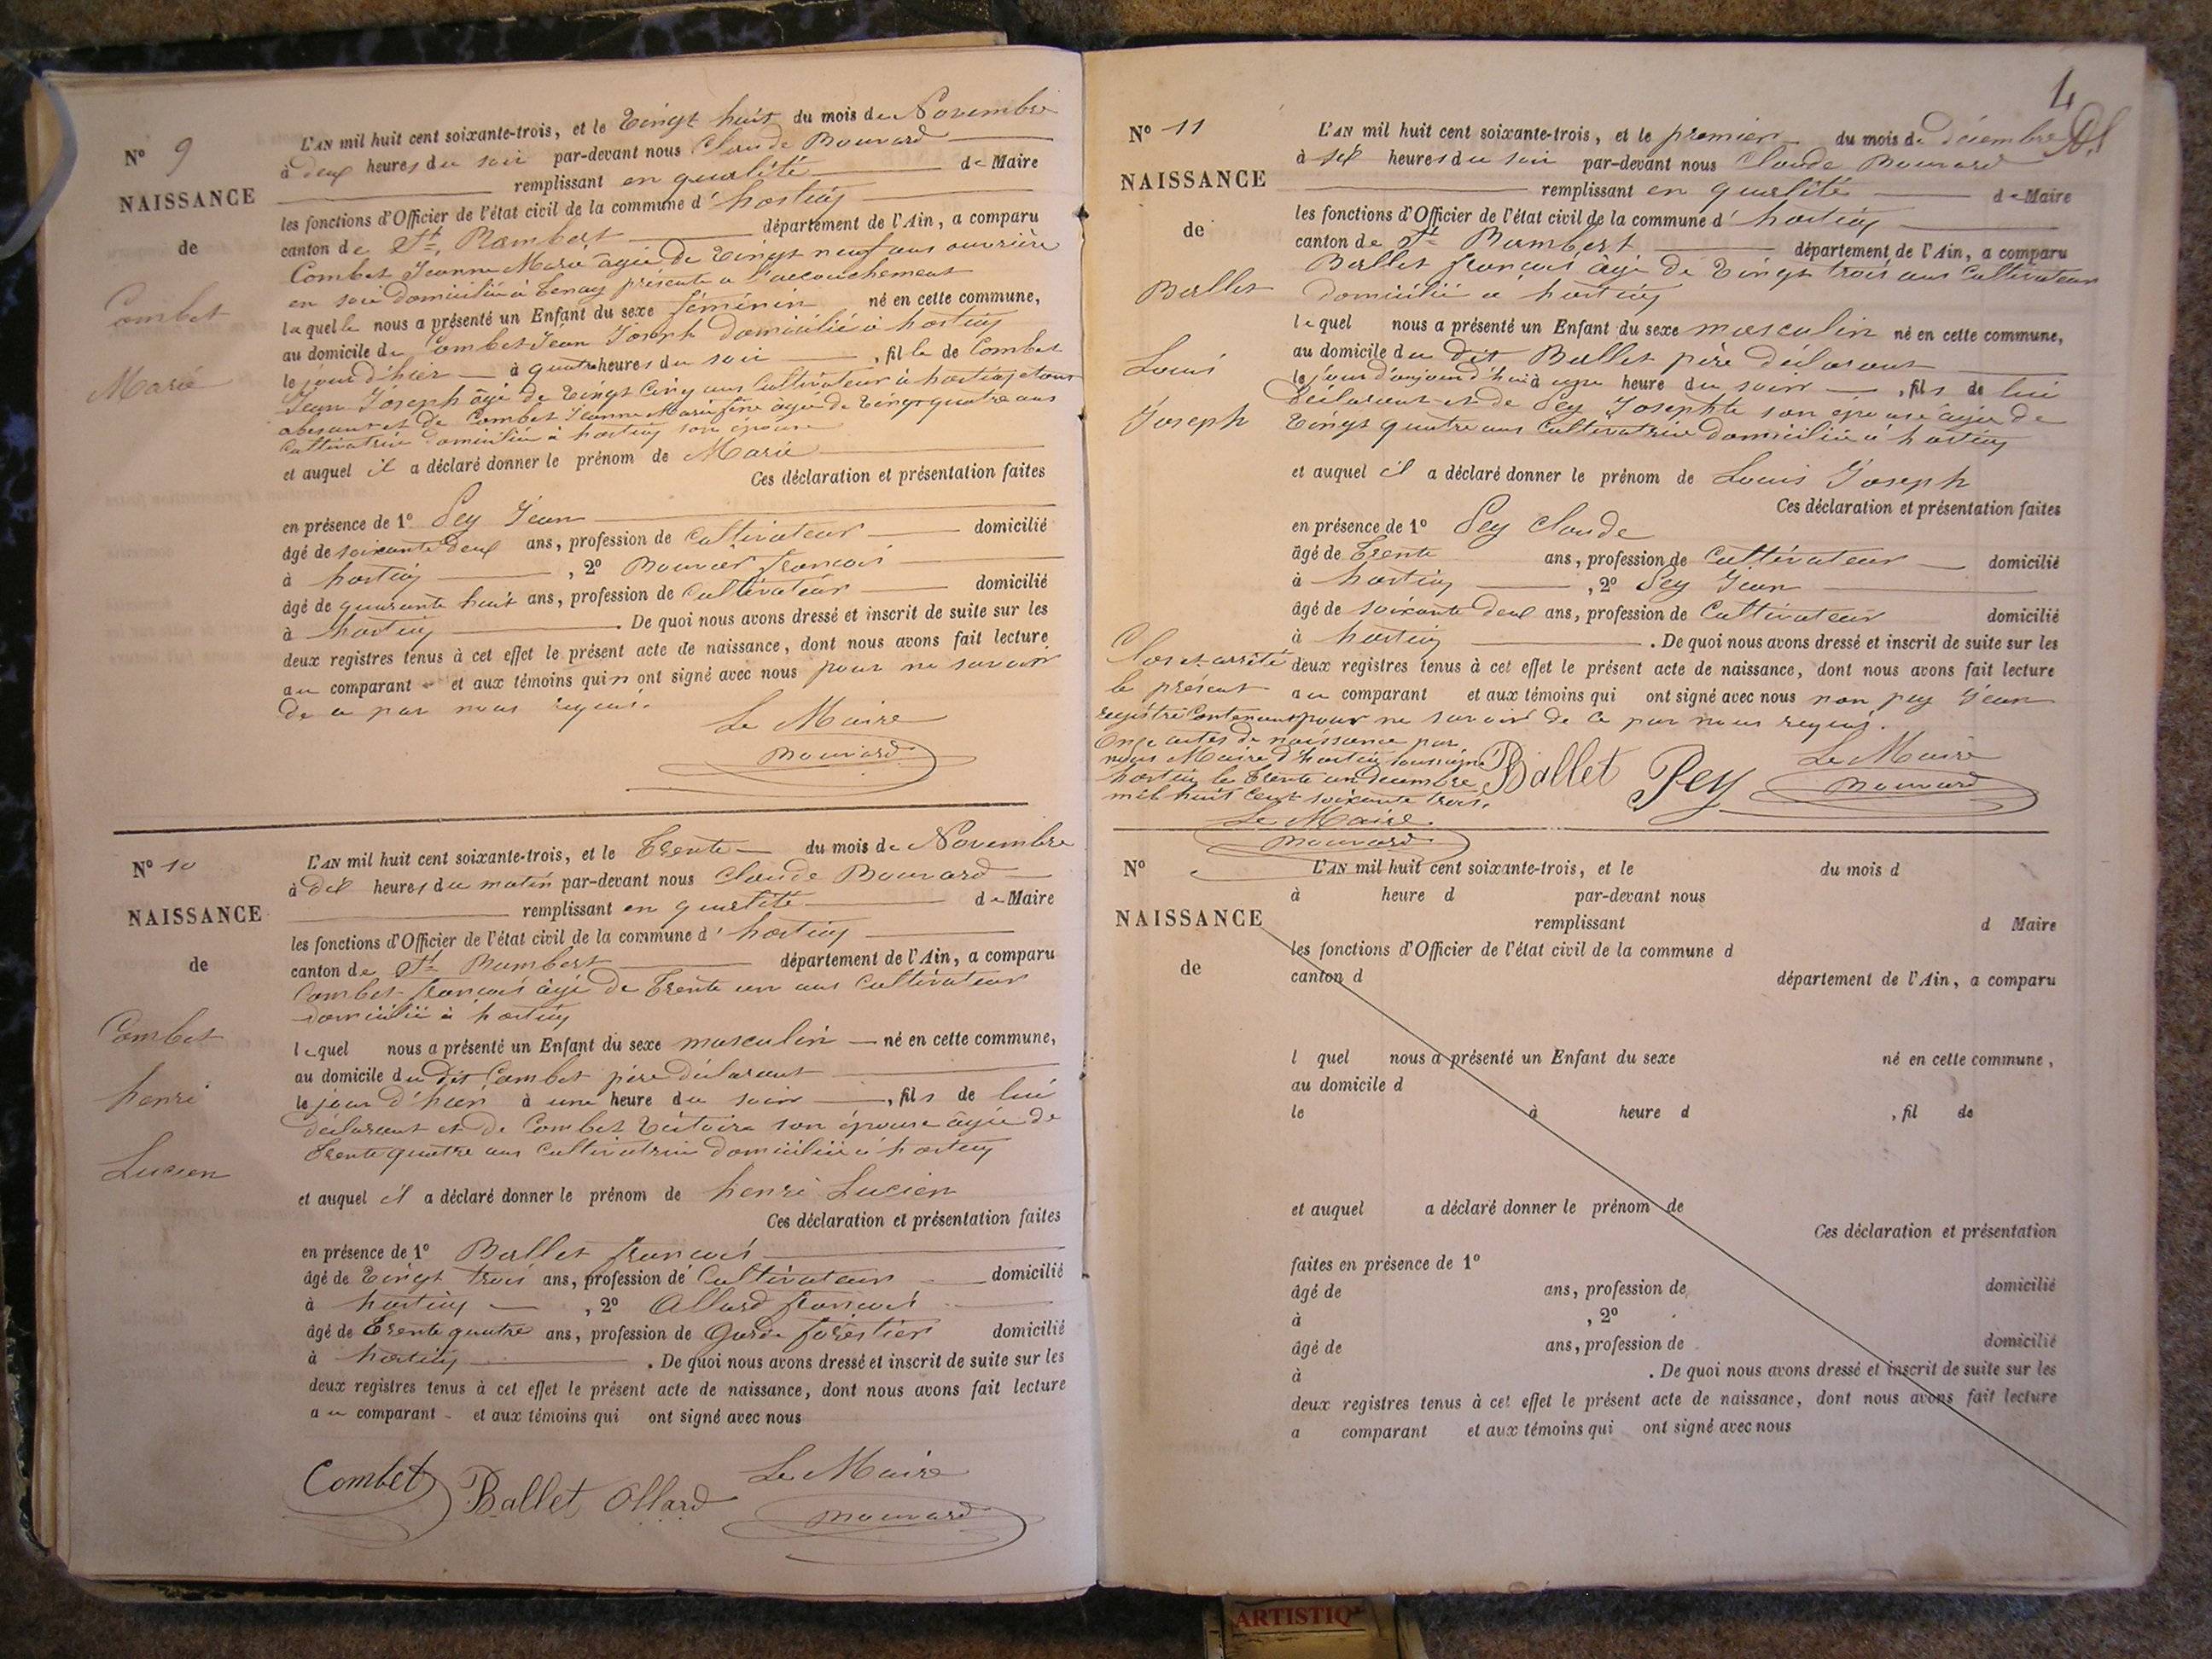 N° 9
NAISSANCE
de
Combet
Marie
L'AN mil huit cent soixante-trois, et le Vingt huit du mois de Novembre
à deux heures du soir par-devant nous Claude Bouvard
remplissant en qualité de Maire
les fonctions d'Officier de l'état civil de la commune d'hostiaz
canton de St Rambert département de l'Ain, a comparu
Combet Jeanne Marie âgée de Vingt neuf ans ouvrière
en soie domiciliée à Tenay présente a l'accouchement
laquelle nous a présenté un Enfant du sexe féminin né en cette commune,
au domicile de Combet Jean Joseph domicilié à hostiaz
le jour d'hier à quatre heures du soir, fille de Combet
Jean Joseph âgé de Vingt Cinq ans Cultivateur à hostiaz étant
absent et de Combet Jeanne Marie âgée de Vingt quatre ans
Cultivatrice domiciliée à hostiaz son épouse
et auquel il a déclaré donner le prénom de Marie
Ces déclaration et présentation faites
en présence de 1° Pey Jean
âgé de soixante deux ans, profession de Cultivateur domicilié
à hostiaz, 2° Bouvier françois
âgé de quarante huit ans, profession de Cultivateur domicilié
à hostiaz. De quoi nous avons dressé et inscrit de suite sur les
deux registres tenus à cet effet le présent acte de naissance, dont nous avons fait lecture
au comparant et aux témoins qui n ont signé avec nous pour ne savoir
de ce par nous requis.
Le Maire
Bouvard
N° 10
NAISSANCE
de
Combet
henri
Lucien
L'AN mil huit cent soixante-trois, et le Trente du mois de Novembre
à dix heures du matin par-devant nous Claude Bouvard
remplissant en qualité de Maire
les fonctions d'Officier de l'état civil de la commune d'hostiaz
canton de St Rambert département de l'Ain, a comparu
Combet françois âgé de Trente un ans Cultivateur
domicilié à hostiaz
lequel nous a présenté un Enfant du sexe masculin né en cette commune,
au domicile du dit Combet père déclarant
le jour d'hier à une heure du soir, fils de lui
déclarant et de Combet Victoire son épouse âgée de
Trente quatre ans Cultivatrice domiciliée à hostiaz
et auquel il a déclaré donner le prénom de henri Lucien
Ces déclaration et présentation faites
en présence de 1° Ballet françois
âgé de Vingt trois ans, profession de Cultivateur domicilié
à hostiaz, 2° Allard françois
âgé de Trente quatre ans, profession de Garde forestier domicilié
à hostiaz. De quoi nous avons dressé et inscrit de suite sur les
deux registres tenus à cet effet le présent acte de naissance, dont nous avons fait lecture
au comparant et aux témoins qui ont signé avec nous
Combet Ballet Allard Le Maire
Bouvard
4
N° 11
NAISSANCE
de
Ballet
Louis
Joseph
L'AN mil huit cent soixante-trois, et le premier du mois de décembre
à six heures du soir par-devant nous Claude Bouvard
remplissant en qualité de Maire
les fonctions d'Officier de l'état civil de la commune d'hostiaz
canton de St Rambert département de l'Ain, a comparu
Ballet françois âgé de Vingt trois ans Cultivateur
domicilié à hostiaz
lequel nous a présenté un Enfant du sexe masculin né en cette commune,
au domicile du dit Ballet père déclarant
le jour d'aujourd'hui à une heure du soir, fils de lui
déclarant et de Pey Josephte son épouse âgée de
Vingt quatre ans Cultivatrice domiciliée à hostiaz
et auquel il a déclaré donner le prénom de Louis Joseph
Ces déclaration et présentation faites
en présence de 1° Pey Claude
âgé de Trente ans, profession de Cultivateur domicilié
à hostiaz, 2° Pey Jean
âgé de soixante deux ans, profession de Cultivateur domicilié
à hostiaz. De quoi nous avons dressé et inscrit de suite sur les
deux registres tenus à cet effet le présent acte de naissance, dont nous avons fait lecture
au comparant et aux témoins qui ont signé avec nous non pey Jean
pour ne savoir de ce par nous requis.
Ballet Pey Le Maire
Bouvard
Clos et arrêté
le présent
registre Contenant
Onze actes de naissance par
nous Maire d'hostiaz soussigné
hostiaz le trente un décembre
mil huit cent soixante trois.
Le Maire
Bouvard
N°
NAISSANCE
de
L'AN mil huit cent soixante-trois, et le du mois d
à heure d par-devant nous
remplissant d Maire
les fonctions d'Officier de l'état civil de la commune d
canton d département de l'Ain, a comparu
l quel nous a présenté un Enfant du sexe né en cette commune,
au domicile d
le à heure d, fil de
et auquel a déclaré donner le prénom de
Ces déclaration et présentation
faites en présence de 1°
âgé de ans, profession de domicilié
à, 2°
âgé de ans, profession de domicilié
à. De quoi nous avons dressé et inscrit de suite sur les
deux registres tenus à cet effet le présent acte de naissance, dont nous avons fait lecture
a comparant et aux témoins qui ont signé avec nous
ARTISTIQ